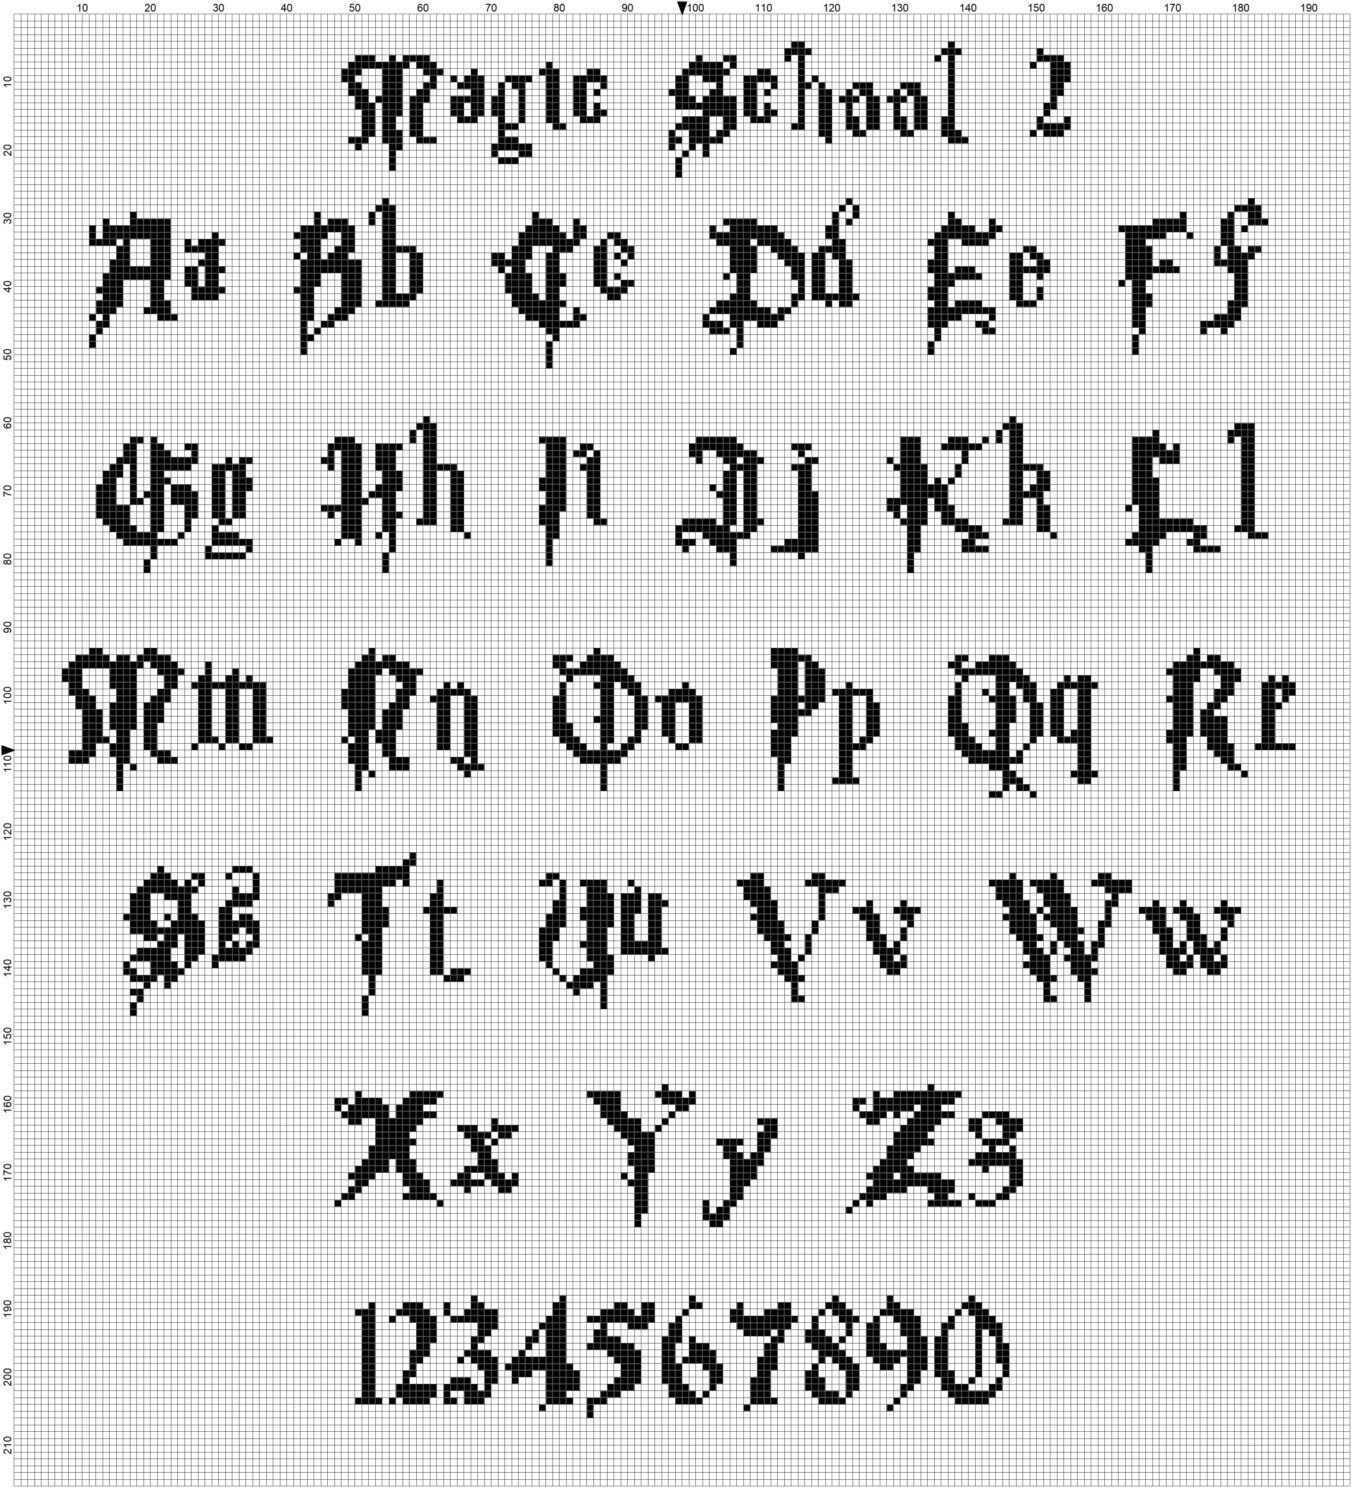 10 20 30 40 50 60 70 80 90 100 110 120 130 140 150 160 170 180 190
Magic School 2
Aa Bb Cc Dd Ee Ff
Gg Hh Ii Jj Kk Ll
Mm Nn Oo Pp Qq Rr
Ss Tt Uu Vv Ww
Xx Yy Zz
1234567890
10
20
30
40
50
60
70
80
90
100
110
120
130
140
150
160
170
180
190
200
210